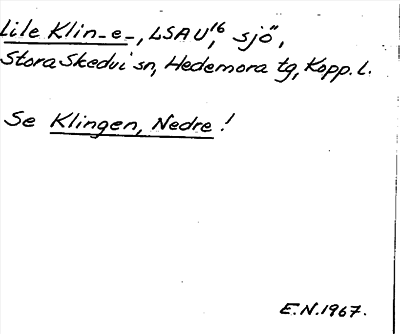 Lile Klin-e-, LSAU,16 sjö",
Stora Skedvi sn, Hedemora tg, Kopp. l.
Se Klingen, Nedre!
E.N.1967.